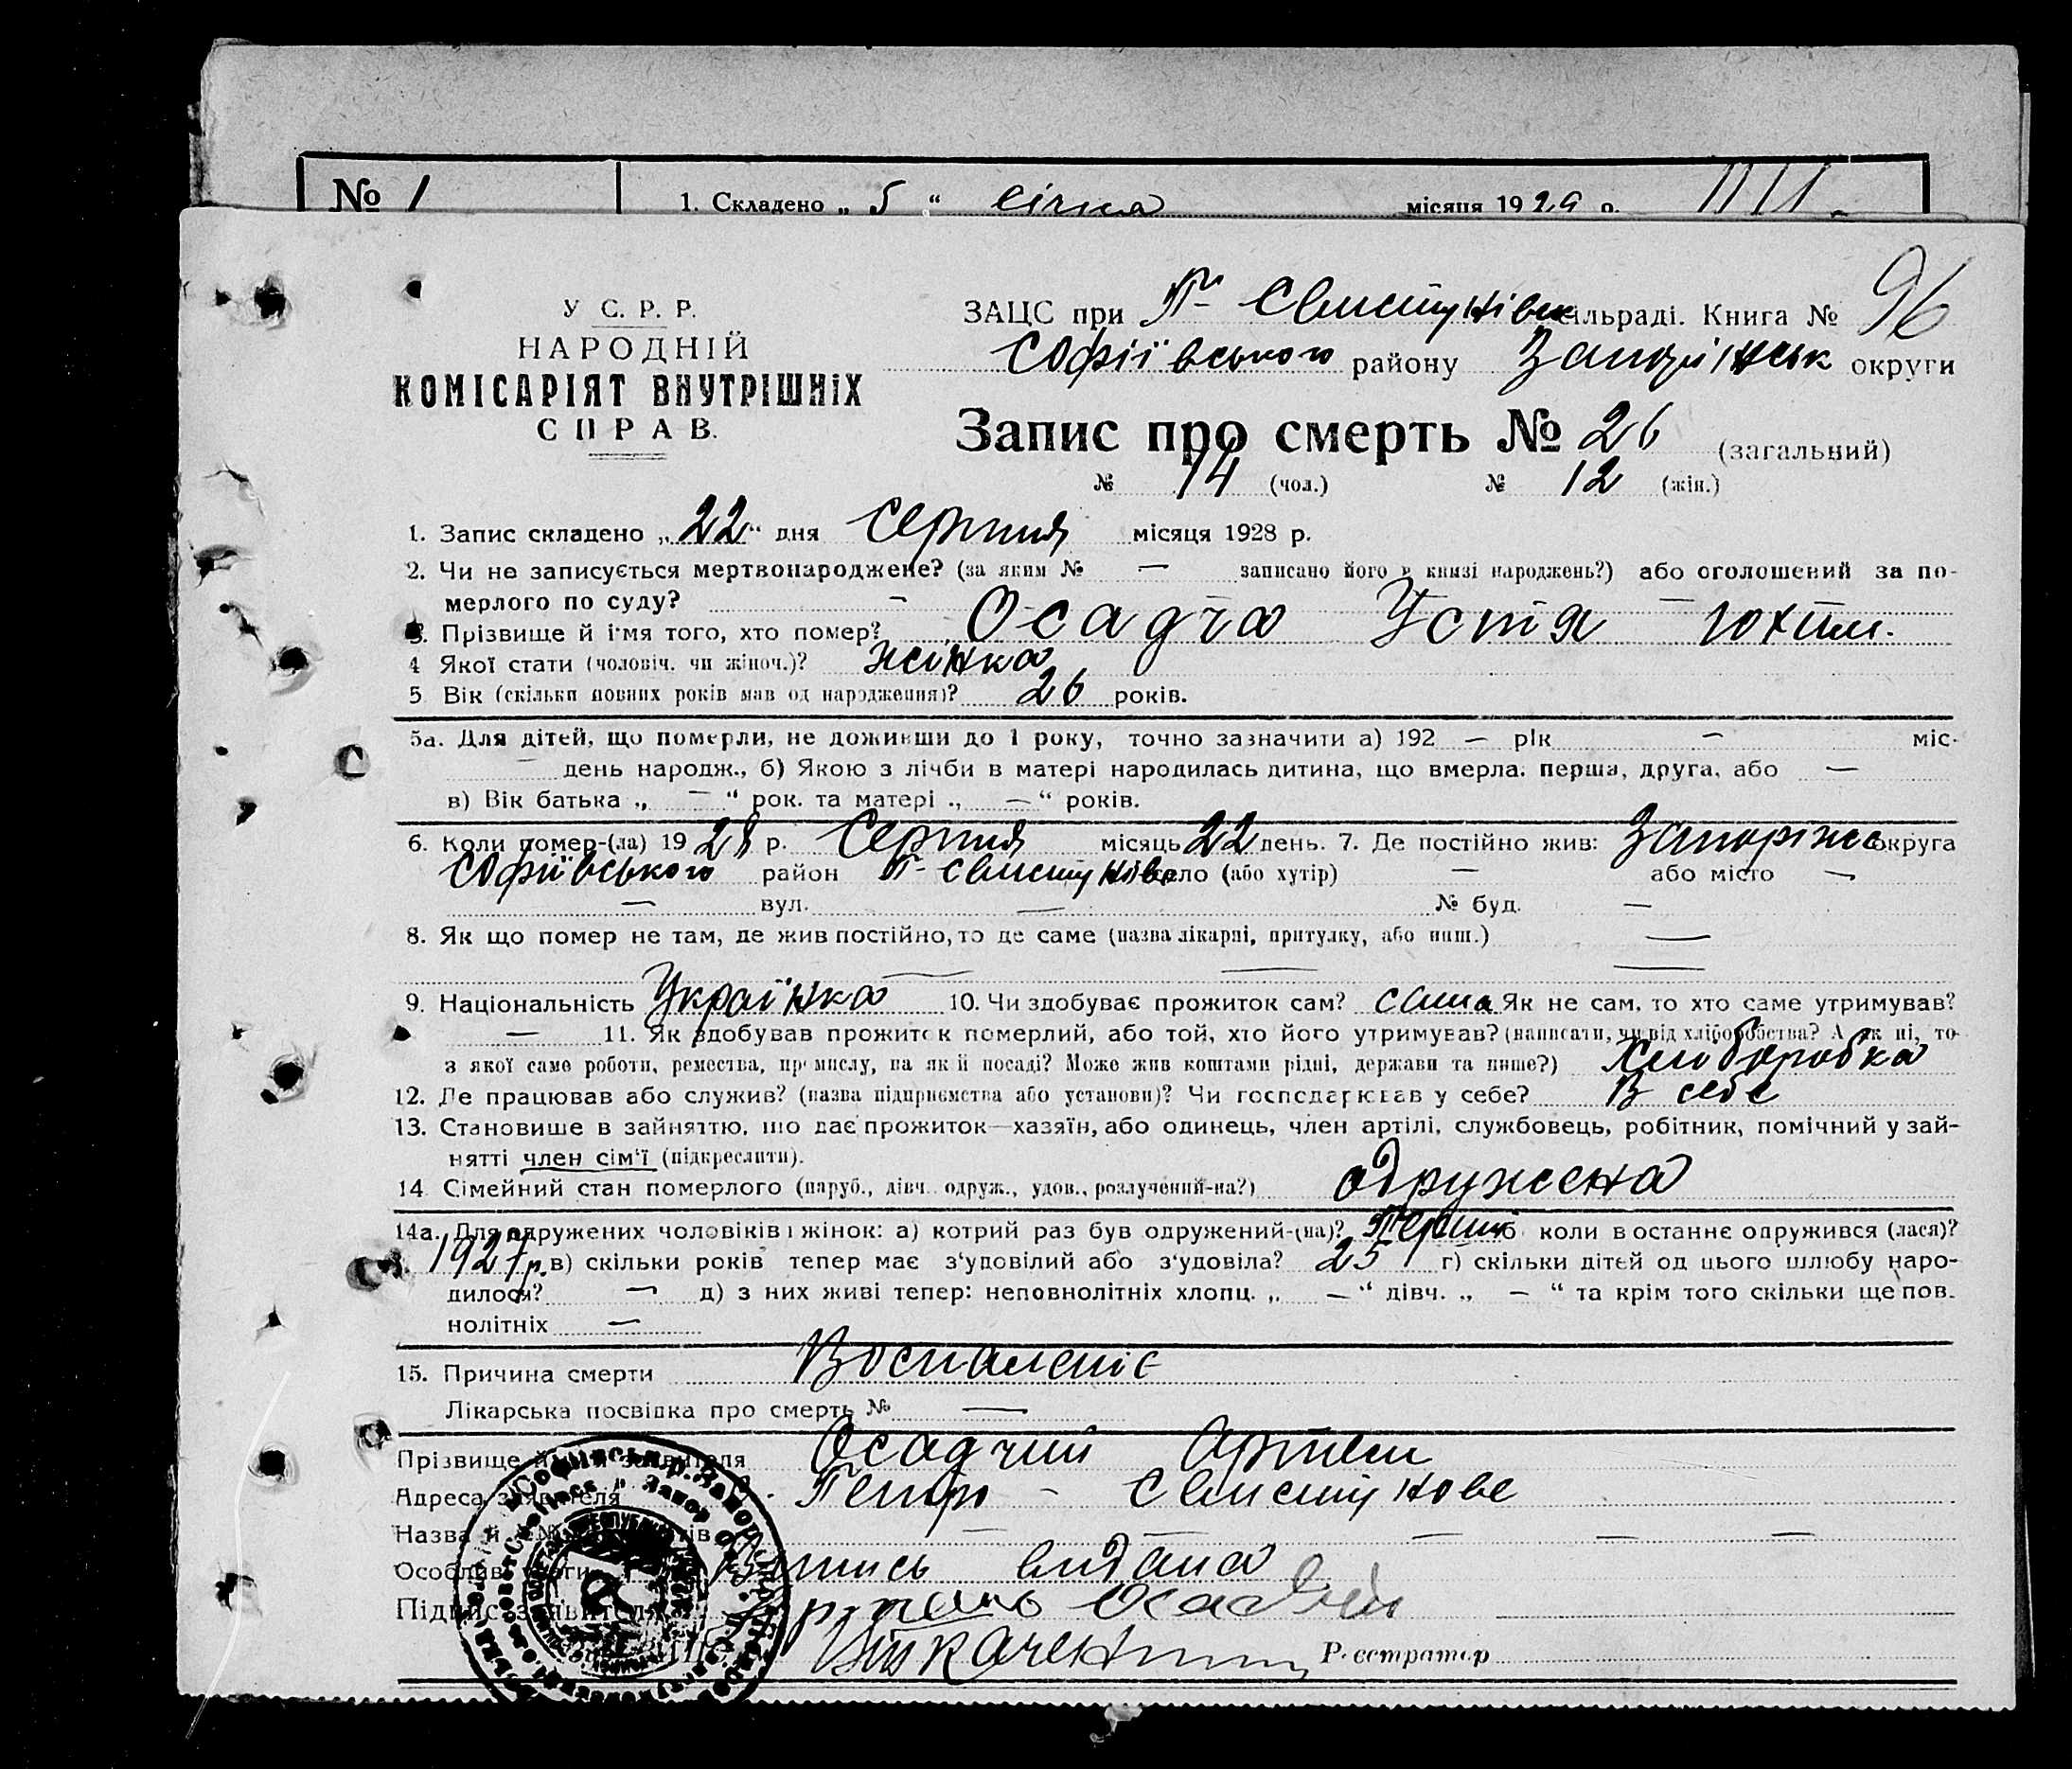 № 1 1. Складено „ 5 “ січня місяця 1929 р.
ЗАЦС при П- Свистунівск сільраді. Книга № 96
У С. Р. Р.
НАРОДНІЙ
КОМІСАРІЯТ ВНУТРІШНІХ
СПРАВ.
Софіївського району Запоріжськ округи
Запис про смерть № 26 (загальний)
№ 14 (чол.) № 12 (жін.)
1. Запис складено „22“ дня Серпня місяця 1928 р.
2. Чи не записується мертвонароджене? (за яким № — записано його в книзі народжень?) або оголошений за по-
мерлого по суду? – –
3. Прізвище й ім'я того, хто помер? Осадча Устя Юхим.
4 Якої стати (чоловіч. чи жіноч.)? жінка
5 Вік (скільки повних років мав од народження)? 26 років.
5а. Для дітей, що померли, не доживши до 1 року, точно зазначити а) 192 — рік — міс.
— день народж., б) Якою з лічби в матері народилась дитина, що вмерла: перша, друга, або —
в) Вік батька „ — “ рок. та матері „ — “ років.
6. Коли помер-(ла) 1928 р. Серпня місяць 22 день. 7. Де постійно жив: Запоріжс округа
Софиївського район П- Свистунове село (або хутір) — або місто —
— вул. — № буд. —
8. Як що помер не там, де жив постійно, то де саме (назва лікарні, притулку, або инш.) —
— — —
9. Національність Українка 10. Чи здобуває прожиток сам? сама Як не сам, то хто саме утримував?
— 11. Як здобував прожиток померлий, або той, хто його утримував? (написати, чи від хліборобства? А як ні, то
з якої саме роботи, ремества, промислу, на якій посаді? Може жив коштами рідні, держави та инше?) хлиборобка
12. Де працював або служив? (назва підприємства або установи)? Чи господарював у себе? В себе
13. Становище в зайняттю, що дає прожиток—хазяїн, або одинець, член артілі, службовець, робітник, помічний у зай-
нятті член сім'ї (підкреслити).
14 Сімейний стан померлого (паруб., дівч. одруж., удов., розлучений-на?) одружена
14а. Для одружених чоловіків і жінок: а) котрий раз був одружений-(на)? Перший б коли востаннє одружився (лася)?
в. 1927 р. в) скільки років тепер має з'удовілий або з'удовіла? 25 г) скільки дітей од цього шлюбу наро-
дилося? — д) з них живі тепер: неповнолітніх хлопц. „ — “ дівч. „ — “ та крім того скільки ще пов-
нолітніх —
15. Причина смерти Воспаленіє
Лікарська посвідка про смерть № —
Прізвище й заявителя Осадчий Артем
Адреса заявителя Петро - Свистунове
Назва й — — — — —
Особливі уваги Випись видана
Підпис заявителя Осадчий
Ткаченко Реєстратор